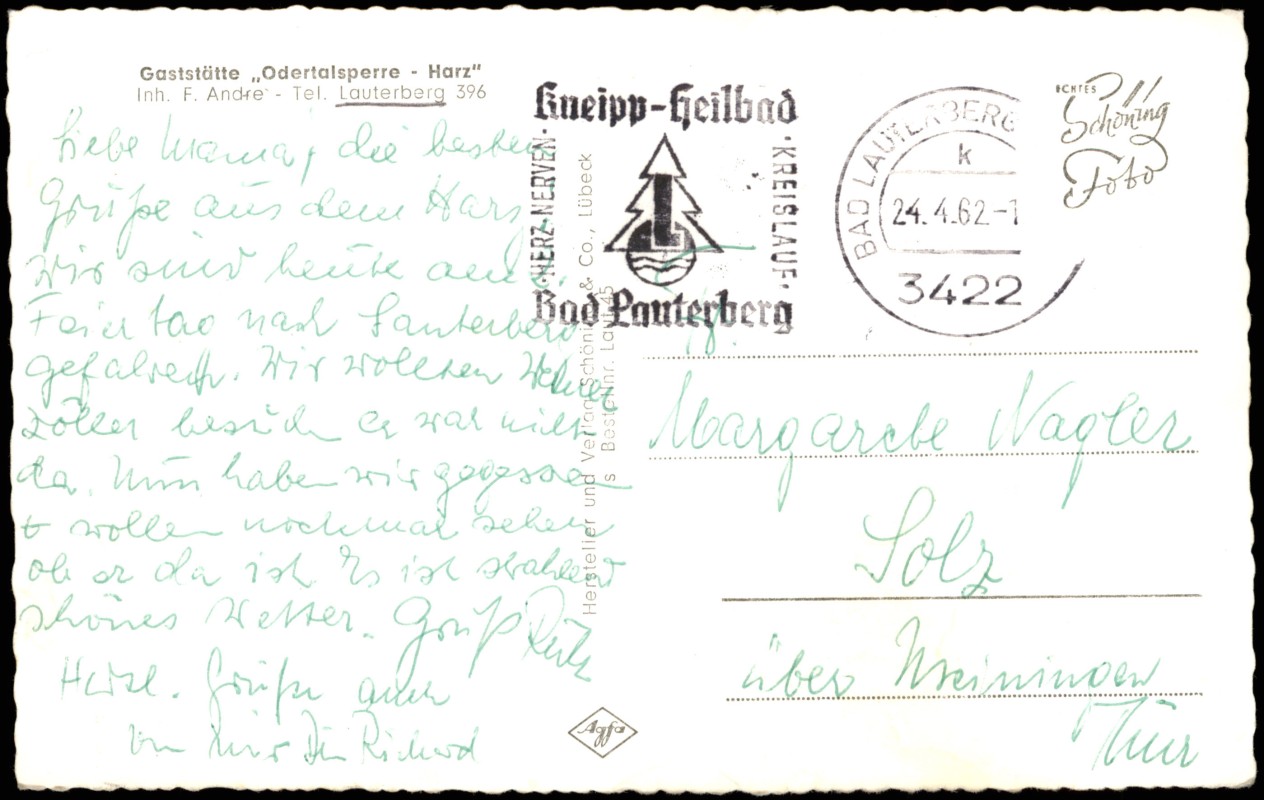 Gaststätte „Odertalsperre - Harz"
Inh. F. Andre - Tel. Lauterberg 396
Liebe Mama, die besten
Grüße aus dem Harz
Wir sind heute am
Feiertag nach Lauterberg
gefahren. Wir wollten
besuchen er war nicht
da. Nun haben wir gegessen
+ wollen nochmal sehen
ob er da ist. Es ist strahlend
schönes Wetter. Gruß Ruth
Herzl. Grüße auch
von mir Dein Richard
Kneipp-Heilbad
·HERZ·NERVEN·
·KREISLAUF·
L
Bad Lauterberg
BAD LAUTERBERG
k
24.4.62-1
3422
ECHTES
Schöning
Foto
Hersteller und Verlag Schöning & Co., Lübeck
s Bestellnr. Lau 45
Margarete Nagler
Solz
über Meiningen
Thür
Agfa